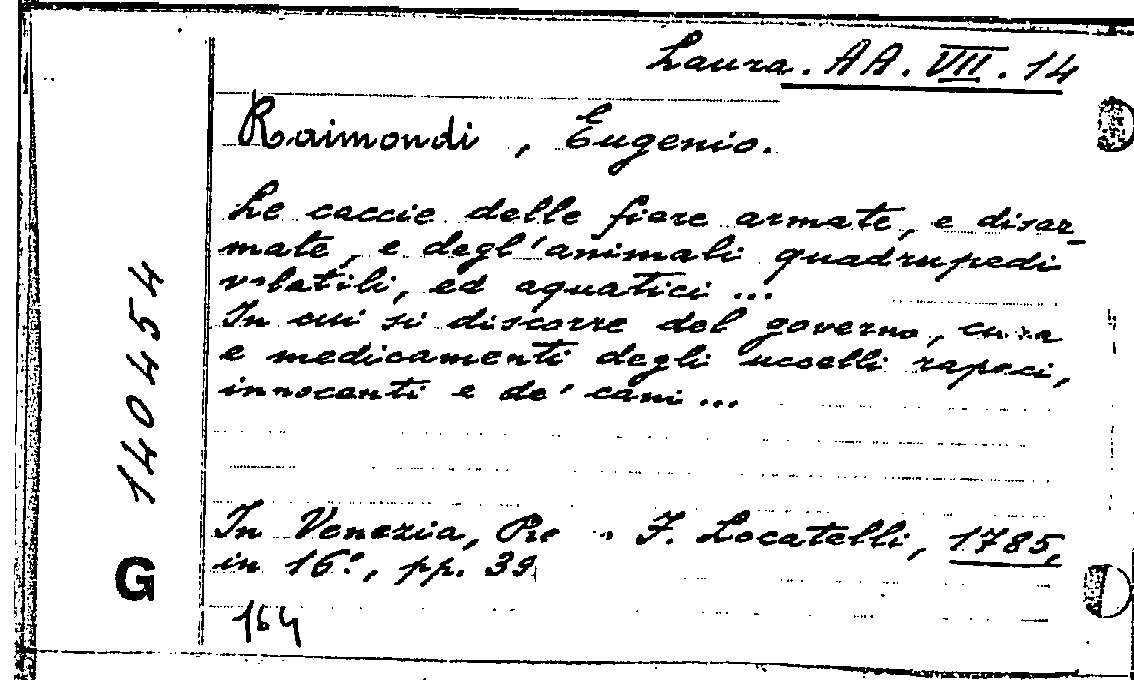 Laura. AA. VII. 14
Raimondi, Eugenio.
Le caccie delle fiere armate, e disar-
mate, e degl'animali quadrupedi
volatili, ed aquatici ...
In cui si discorre del governo, cura
e medicamenti degli uccelli rapaci,
innocenti e de' cani ...
In Venezia, F. Locatelli, 1785,
in 16°, pp. 39
164
G 140454